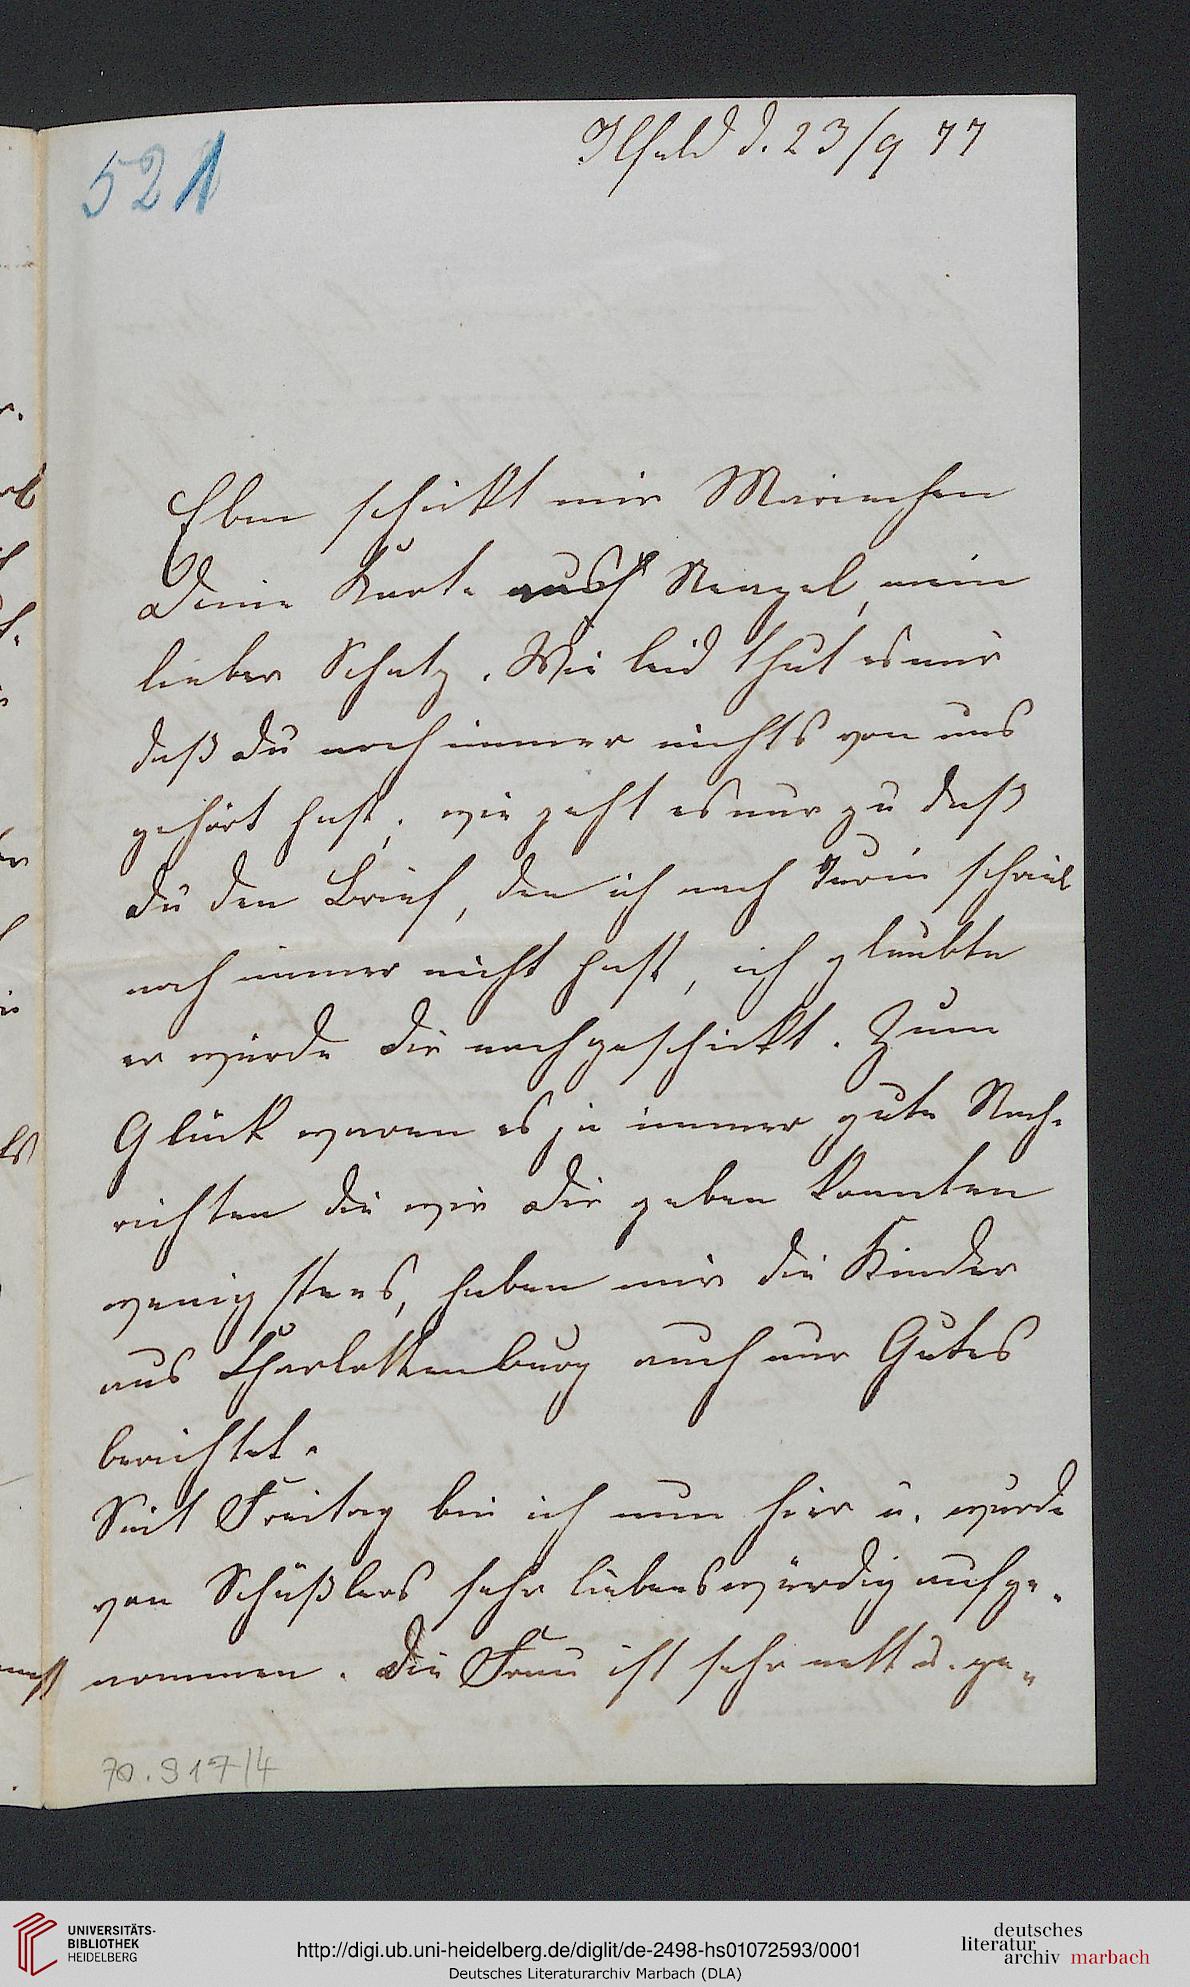 Ilfeld d. 23/9 77
521
Eben schickt mir Mariechen
Deine Karte aus Neapel, mein
lieber Schatz. Wie leid thut es mir
daß Du noch immer nichts von uns
gehört hast, wie geht es nur zu daß
Du den Brief, den ich nach Turin schrieb
noch immer nicht hast, ich glaubte
er würde Dir nachgeschickt. Zum
Glück waren es ja immer gute Nach-
richten die wir Dir geben konnten
wenigstens, haben mir die Kinder
aus Charlottenburg auch nur Gutes
berichtet.
Seit Freitag bin ich nun hier u. wurde
von Schüßlers sehr liebenswürdig aufge-
nommen. Die Frau ist sehr nett u. ge-
70.917/4
UNIVERSITÄTS-
BIBLIOTHEK
HEIDELBERG
http://digi.ub.uni-heidelberg.de/diglit/de-2498-hs01072593/0001
Deutsches Literaturarchiv Marbach (DLA)
deutsches
literatur
archiv marbach